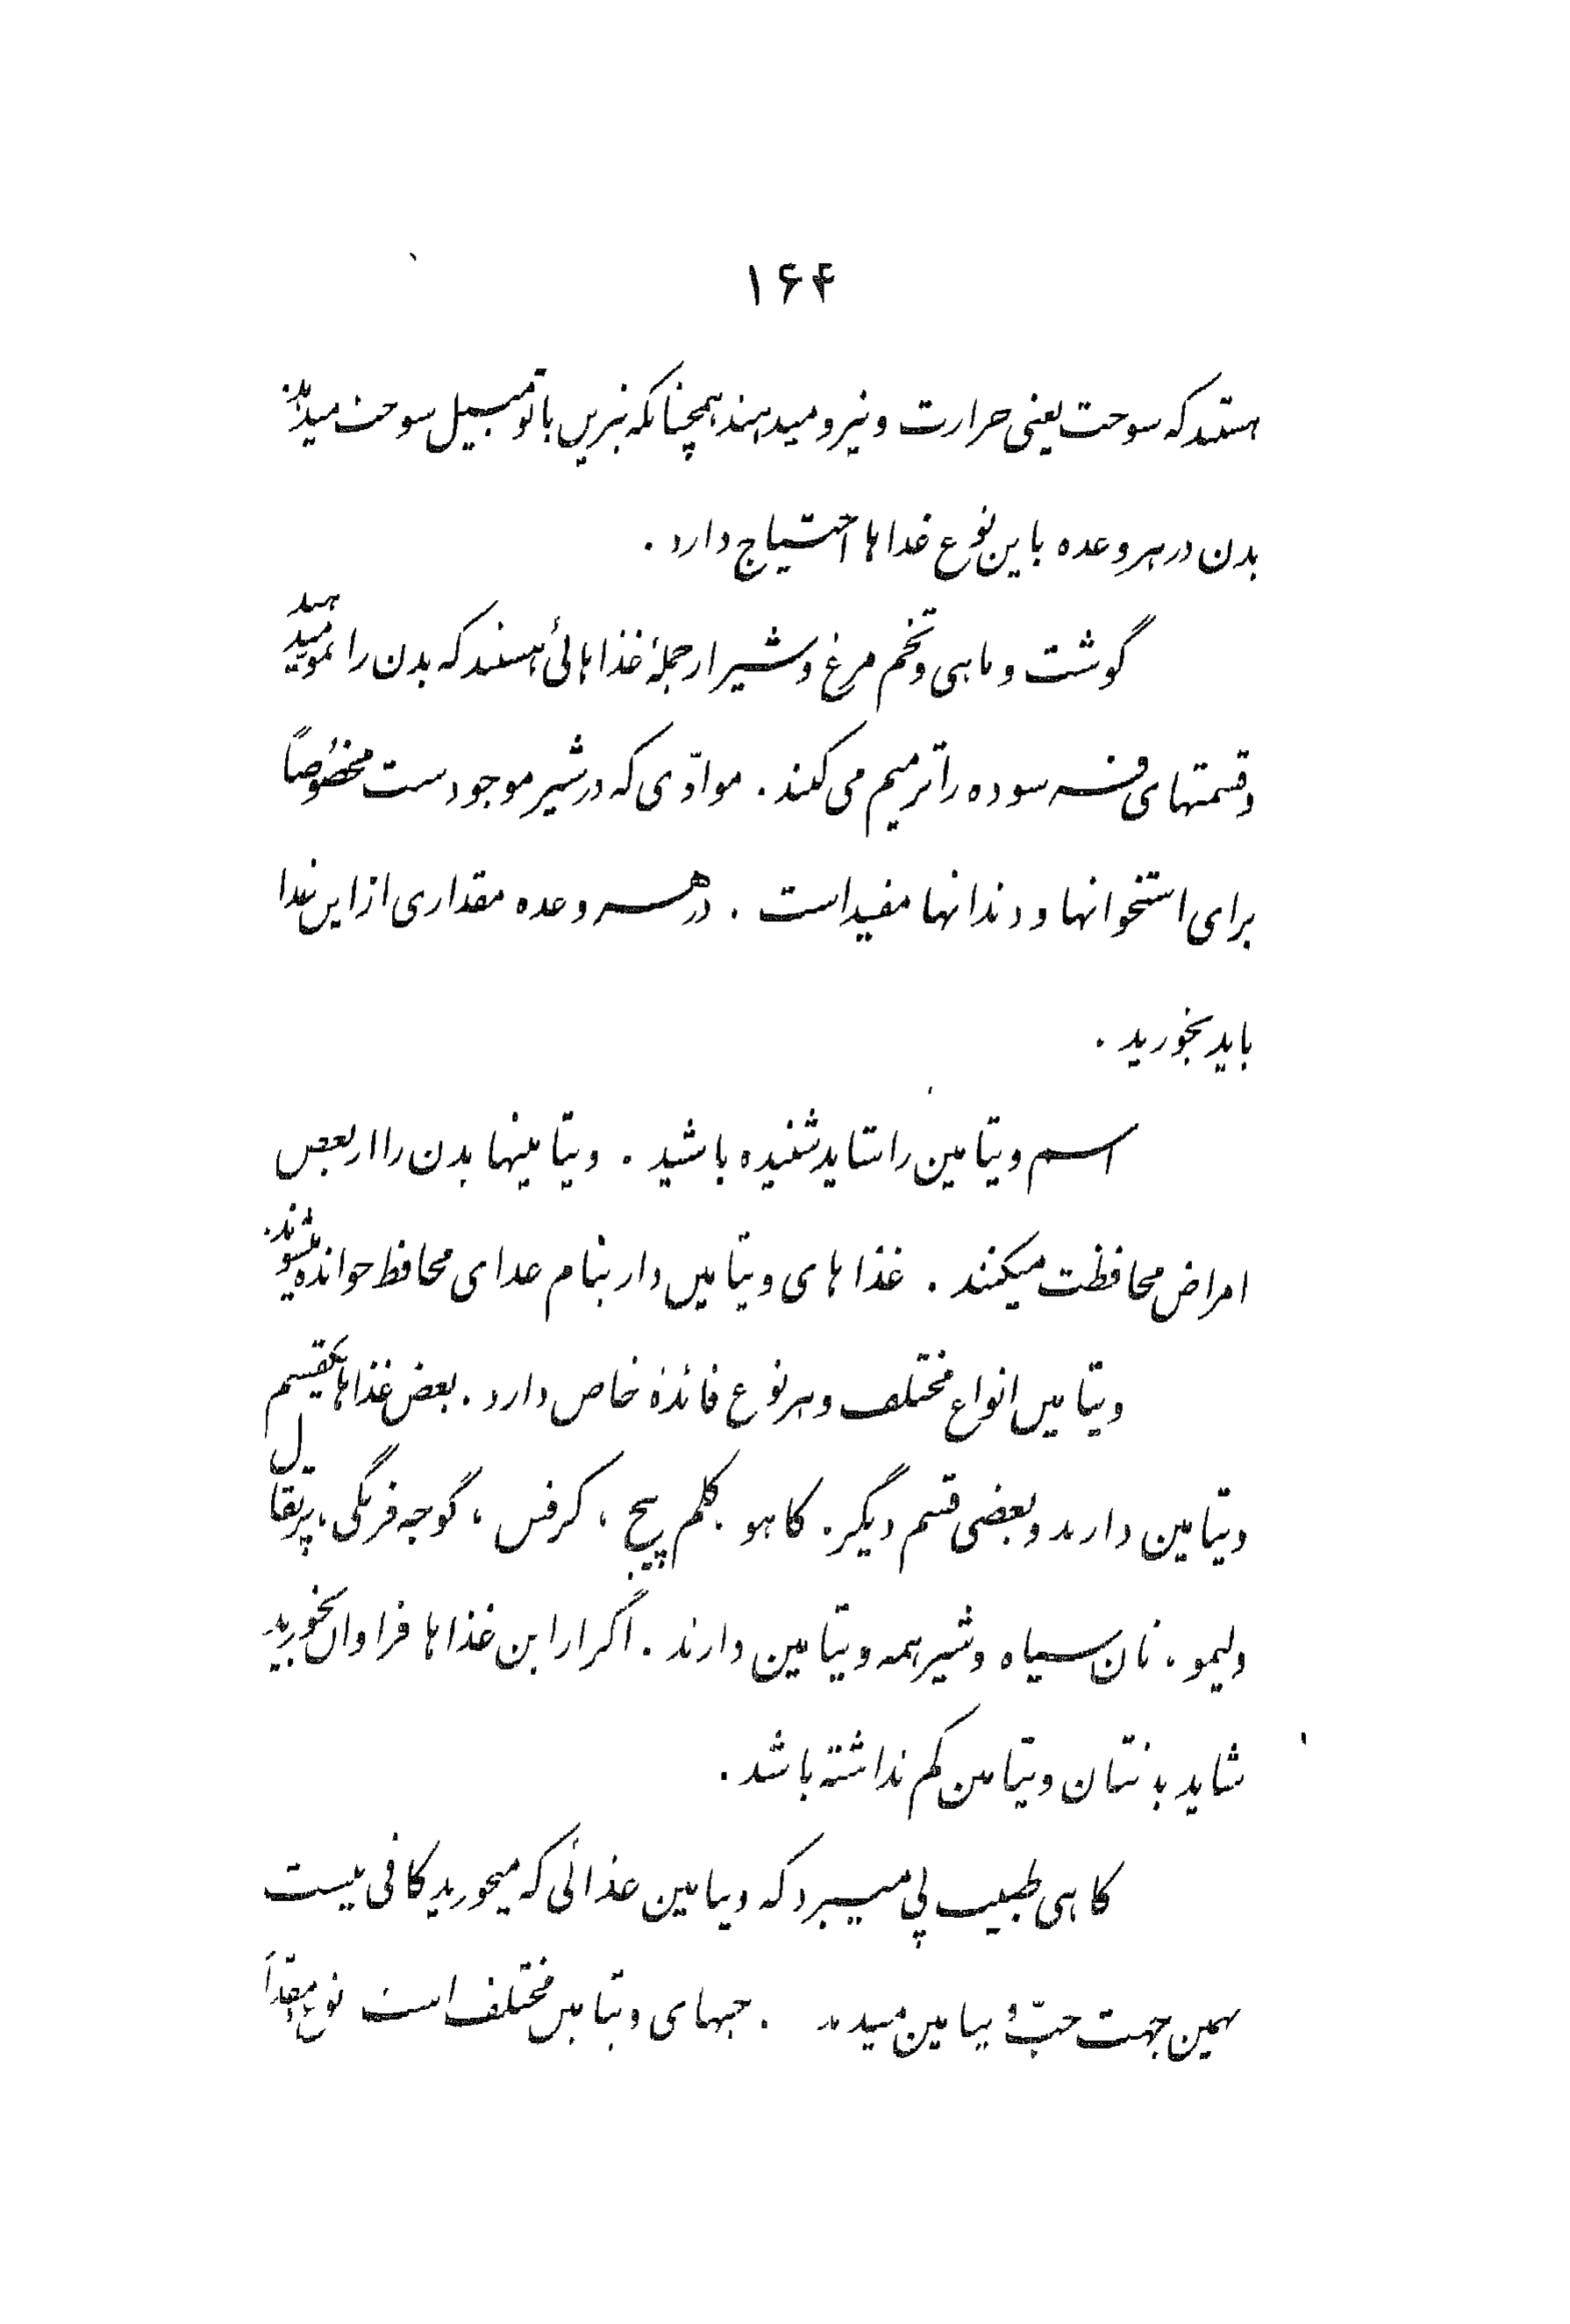 ۱۶۴
هستند که سوخت یعنی حرارت و نیرو میدهند همچنانکه بنزین باتومبیل سوخت میدهد.
بدن در هر وعده باین نوع غذاها احتیاج دارد .
گوشت و ماهی و تخم مرغ و شیر از جملهٔ غذاهائی هستند که بدن را نمو میدهند
و قسمتهای فرسوده را ترمیم می کنند . موادّی که در شیر موجودست مخصوصاً
برای استخوانها و دندانها مفید است . در هر وعده مقداری از این غذا
باید بخورید .
اسم ویتامین را شاید شنیده باشید . ویتامینها بدن را از بعض
امراض محافظت میکنند . غذاهای ویتامین دار بنام غذای محافظ خوانده میشوند .
ویتامین انواع مختلف و هر نوع فائدهٔ خاص دارد . بعض غذاها یکقسم
ویتامین دارند و بعضی قسم دیگر . کاهو . کلم پیچ ، کرفس ، گوجه فرنگی ، پرتقال
و لیمو ، نان سیاه و شیر همه ویتامین دارند . اگر از این غذاها فراوان بخورید
شاید بدنتان ویتامین کم نداشته باشد .
گاهی طبیب پی میبرد که ویتامین غذائی که میخورید کافی نیست
بهمین جهت حبّ ویتامین میدهد . حبهای ویتامین مختلف است نوع و مقدار